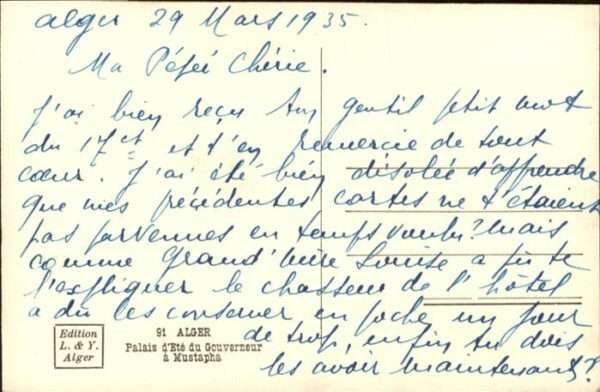 Alger 29 Mars 1935.
Ma Pépée Chérie.
J'ai bien reçu ton gentil petit mot
du 17ct et t'en remercie de tout
cœur. J'ai été bien désolée d'apprendre
que mes précédentes cartes ne t'étaient
pas parvenues en temps voulu? Mais
comme Grand'Mère Louise a pu te
l'expliquer le chasseur de l'hôtel
a dû les conserver en poche un jour
de trop, enfin tu dois
les avoir maintenant?
Edition
L. & Y.
Alger
91 ALGER
Palais d'Eté du Gouverneur
à Mustapha